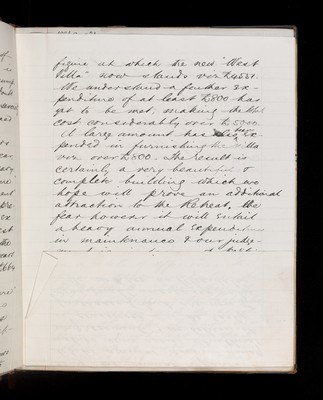 figure at which the new "West
Villa" now stands viz £4551.
We understand a further ex-
penditure of at least £800 has
yet to be met, making the total
cost considerably over £5000.
A large amount has been ex-
pended in furnishing the Villa
viz over £800. The result is
certainly a very beautiful &
complete building which we
hope will prove an additional
attraction to the Retreat, We
fear however it will entail
a heavy annual expenditure
in maintenance & our judge-